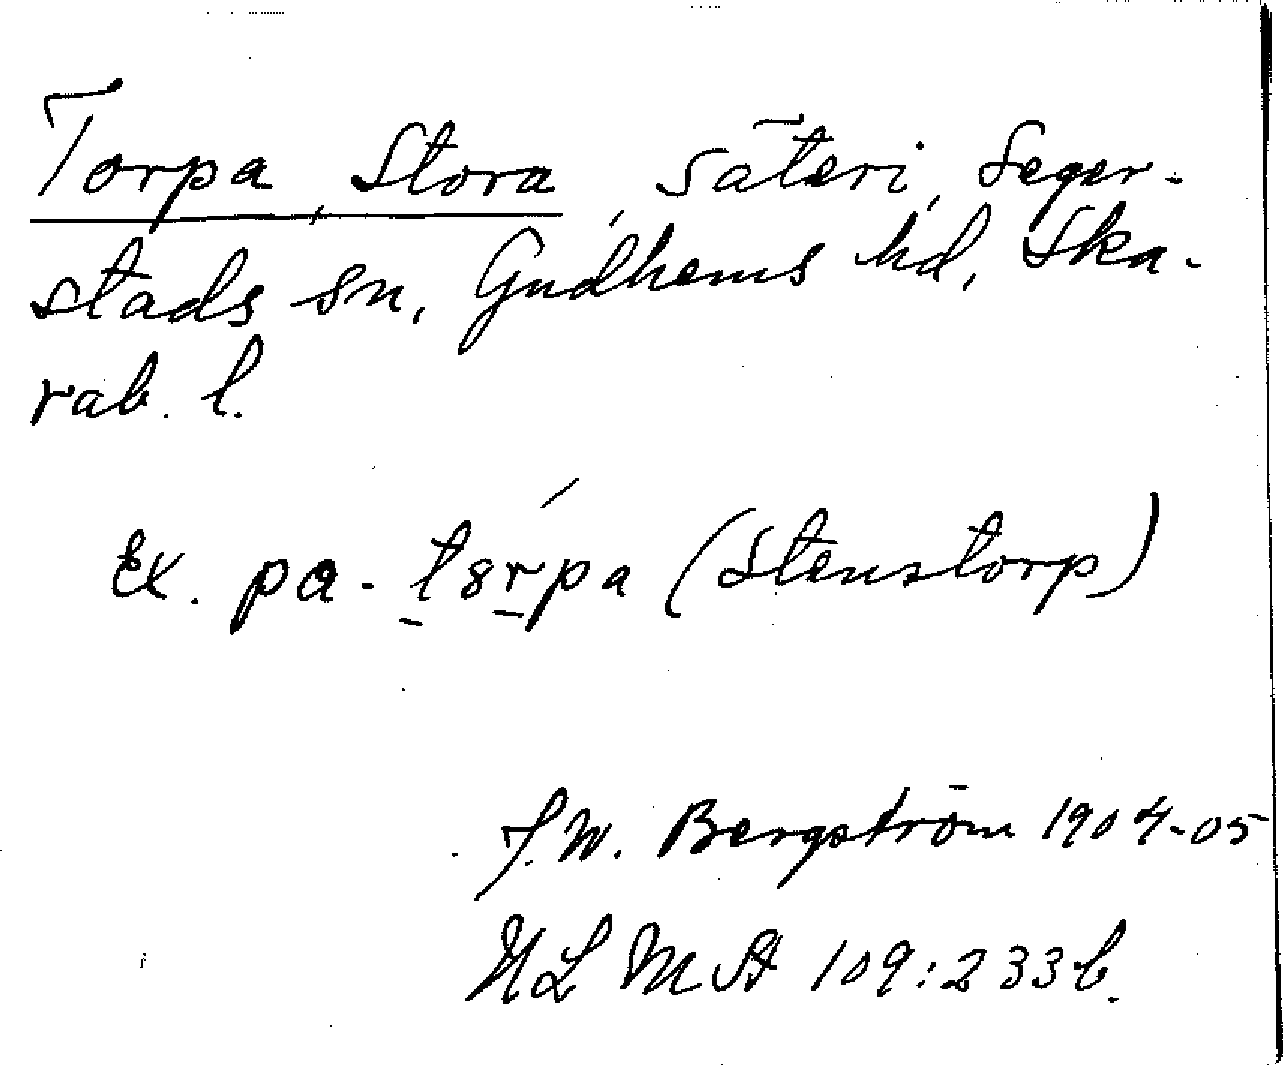 Torpa, Stora, säteri, Seger-
stads sn, Gudhems hd, Ska-
rab. l.
Ex. pa-
(Stenstorp)
J.W. Bergström 1904-05
233b.